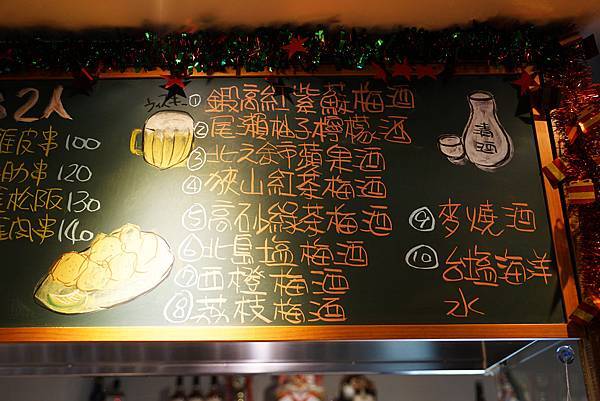 2人
雞皮串100
肋串120
松阪130
皮串140
ウィスキー
①鍛高紅紫蘇梅酒
②尾瀨柚子檸檬酒
③北之合市蘋果酒
④狹山紅茶梅酒
⑤高砂綠茶梅酒
⑥北島塩梅酒
⑦西橙梅酒
⑧荔枝梅酒
清酒
⑨麥燒酒
⑩台塩海洋水